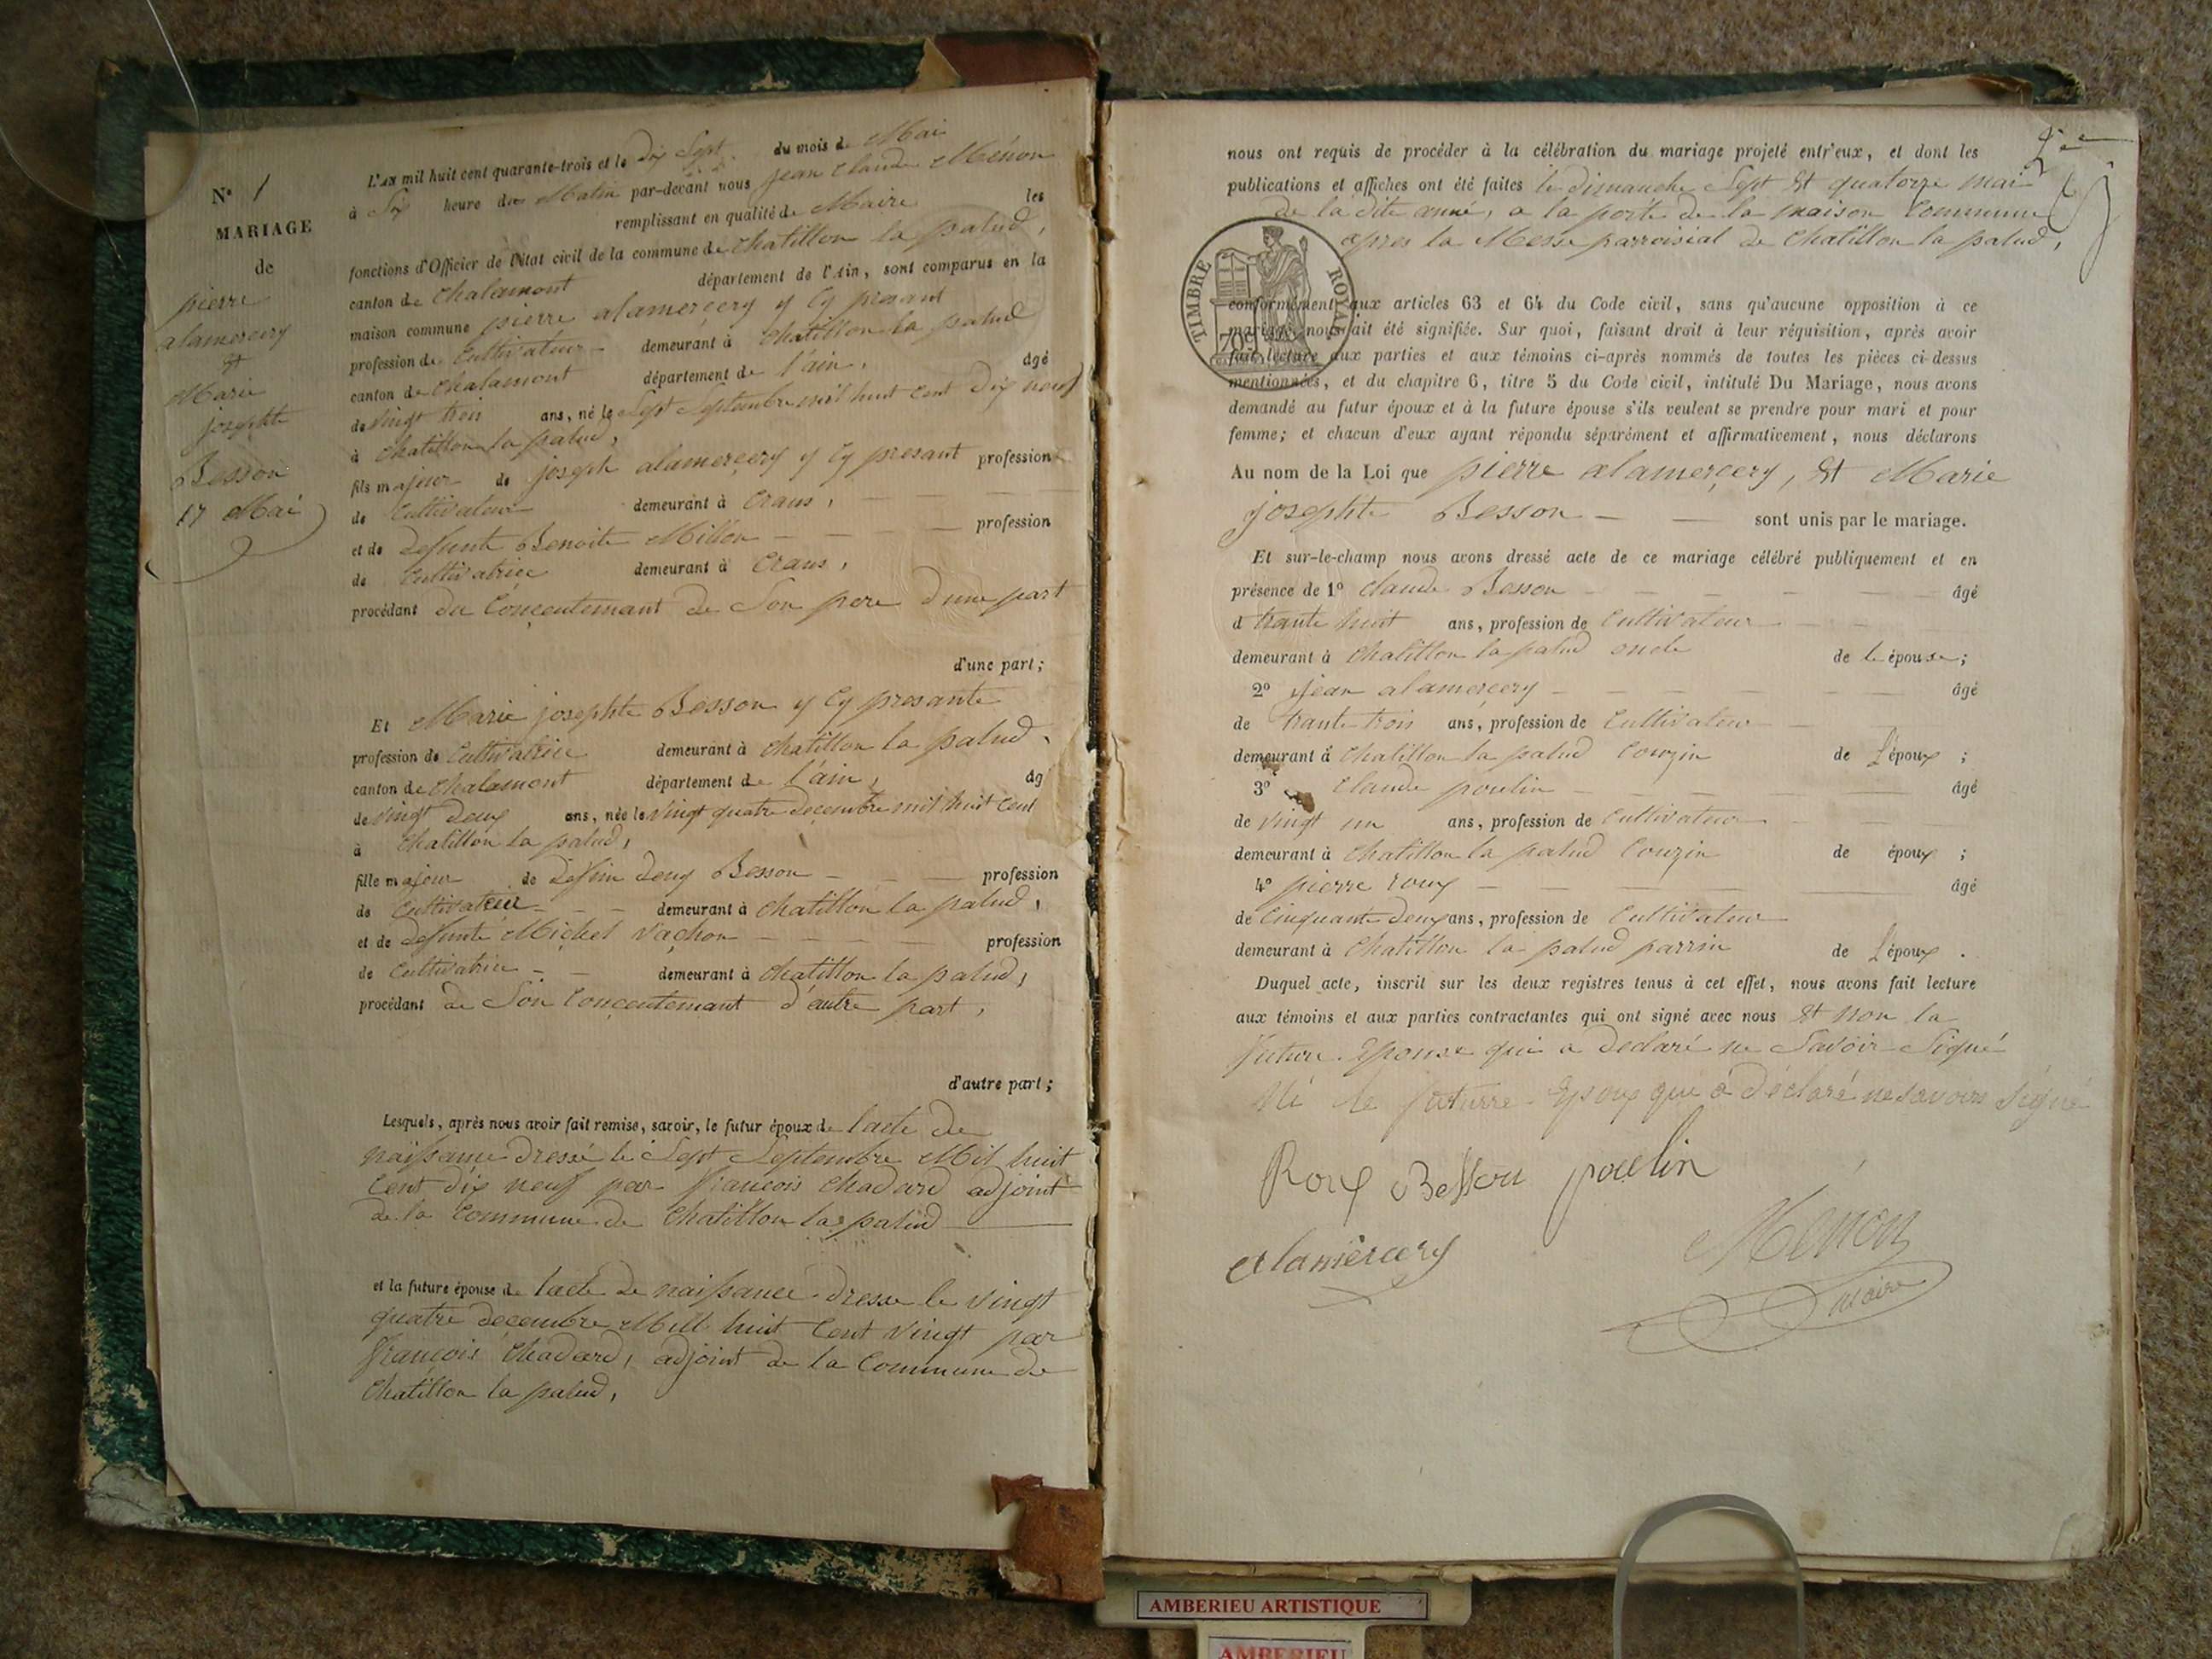 N° 1
MARIAGE
de
pierre
alamercery
et
Marie
josephte
Besson
17 Mai
L'AN mil huit cent quarante-trois et le dix Sept du mois de Mai
à Six heure du Matin par-devant nous jean claude Ménon
remplissant en qualité de Maire les
fonctions d'Officier de l'état civil de la commune de chatillon la palud,
canton de chalamont département de l'Ain, sont comparus en la
maison commune pierre alamerçery y Cy presant
profession de Cultivateur demeurant à chatillon la palud
canton de chalamont département de l'ain, âgé
de vingt trois ans, né le Sept Septembre mil huit cent dix neuf
à chatillon la palud,
fils majeur de joseph alamerçery y Cy presant profession
de Cultivateur demeurant à Crans,
et de Defunte Benoite Millon profession
de Cultivatrice demeurant à Crans,
procédant du Conçentemant de Son pere d'une part
d'une part;
Et Marie josephte Besson y Cy presante
profession de Cultivatrice demeurant à chatillon la palud,
canton de chalamont département de l'ain, âg
de vingt Deux ans, née le vingt quatre deçembre mil huit Cent
à chatillon la palud,
fille majeur de Défun Deny Besson profession
de Cultivateur demeurant à chatillon la palud,
et de Defunte Michel Vaçhon profession
de Cultivatrice demeurant à chatillon la palud,
procédant de Son Conçentemant d'autre part,
d'autre part;
Lesquels, après nous avoir fait remise, savoir, le futur époux de lacte de
naissance Dressé le Sept Septembre Mil huit
Cent dix neuf par françois chadard adjoint
de la Commune de Chatillon la palud
et la future épouse de lacte de naissance dresse le vingt
quatre deçembre Mill huit Cent vingt par
françois chadard, adjoint de la Commune de
Chatillon la palud,
nous ont requis de procéder à la célébration du mariage projeté entr'eux, et dont les
publications et affiches ont été faites le dimanche Sept Et quatorze mai
de la dite anné, a la porte de la maison Commune
apres la Messe parroisial de chatillon la palud,
TIMBRE ROYAL
70c
conformément aux articles 63 et 64 du Code civil, sans qu'aucune opposition à ce
mariage nous ait été signifiée. Sur quoi, faisant droit à leur réquisition, après avoir
fait lecture aux parties et aux témoins ci-après nommés de toutes les pièces ci-dessus
mentionnées, et du chapitre 6, titre 5 du Code civil, intitulé Du Mariage, nous avons
demandé au futur époux et à la future épouse s'ils veulent se prendre pour mari et pour
femme; et chacun d'eux ayant répondu séparément et affirmativement, nous déclarons
Au nom de la Loi que pierre alamerçery, Et Marie
josephte Besson sont unis par le mariage.
Et sur-le-champ nous avons dressé acte de ce mariage célébré publiquement et en
présence de 1° claude Besson âgé
d trante huit ans, profession de Cultivateur
demeurant à chatillon la palud oncle de le épouse;
2° jean alamerçery âgé
de trante trois ans, profession de Cultivateur
demeurant à Chatillon la palud Couzin de L'époux;
3° Claude poulin âgé
de vingt un ans, profession de Cultivateur
demeurant à chatillon la palud Couzin de époux;
4° pierre roux âgé
de Cinquante deux ans, profession de Cultivateur
demeurant à Chatillon la palud parrin de L'époux.
Duquel acte, inscrit sur les deux registres tenus à cet effet, nous avons fait lecture
aux témoins et aux parties contractantes qui ont signé avec nous Et non la
future Epouse qui a Declaré ne Savoir Signé
Ni le futurre Epoux que a Déclaré ne savoirs Signé
Roux Besson poulin
alamercery
Menon
maire
AMBERIEU ARTISTIQUE
AMBERIEU